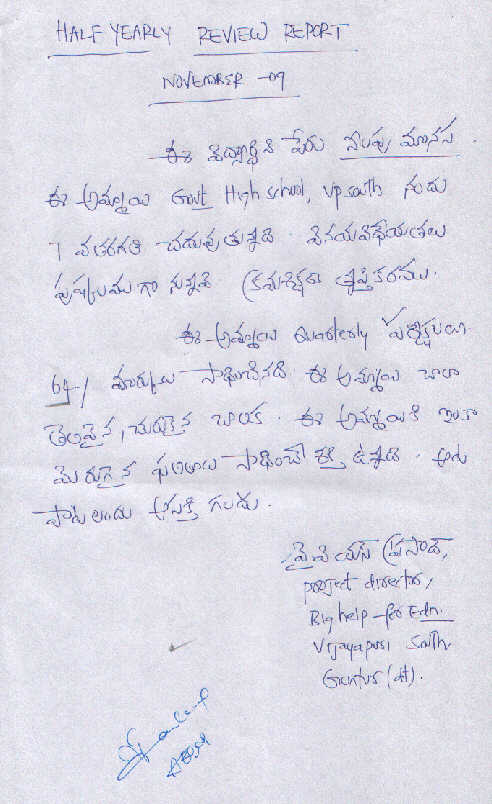 HALF YEARLY REVIEW REPORT
NOVEMBER -09
ఈ విద్యార్థిని పేరు నిలపు మానస.
ఈ అమ్మాయి Govt High school, vp south నందు
7 వ తరగతి చదువుతున్నది. వినయవిధేయతలు
పుష్కలముగా నున్నవి క్రమశిక్షణ తృప్తికరము.
ఈ అమ్మాయి Quarterly పరీక్షలలో
64/ మార్కులు సాధించినది ఈ అమ్మాయి చాలా
తెలివైన, చురుకైన బాలిక. ఈ అమ్మాయికి ఇంకా
మెరుగైన ఫలితాలు సాధించే శక్తి ఉన్నది. ఆట
పాటలందు ఆసక్తి గలదు.
వై.వి.యస్ ప్రసాద్,
project director,
Bighelp - for Edn.
Vijayapuri South.
Guntur (dt).